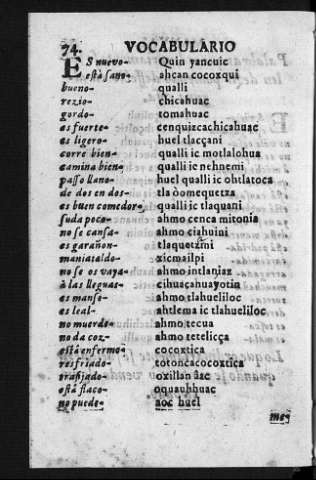 74. VOCABULARIO
ES nuevo- Quin yancuic
está sano- ahcan cocoxqui
bueno- qualli
rezio- chicahuac
gordo- tomahuac
es fuerte- cenquizcachicahuac
es ligero- huel tlacçani
corre bien- qualli ic motlalohua
camina bien- qualli ic nehnemi
passo llano- huel qualli ic ohtlatoca
de dos en dos- tla òomequetza
es buen comedor- qualli ic tlaquani
suda poco- ahmo cenca mitonia
no se cansa- ahmo ciahuini
es garañon- tlaquetzini
maniataldo- xicmailpi
no se os vaya- ahmo intlaniaz
à las lleguas- cihuaçahuayotin
es manso- ahmo tlahueliloc
es leal- ahtlema ic tlahueliloc
no muerde- ahmo tecua
no da coz- ahmo tetelicça
está enfermo- cocoxtica
resfriado- totoncacocoxtica
oxillan
está flaco- oquauhhuac
no puede- aoc huel